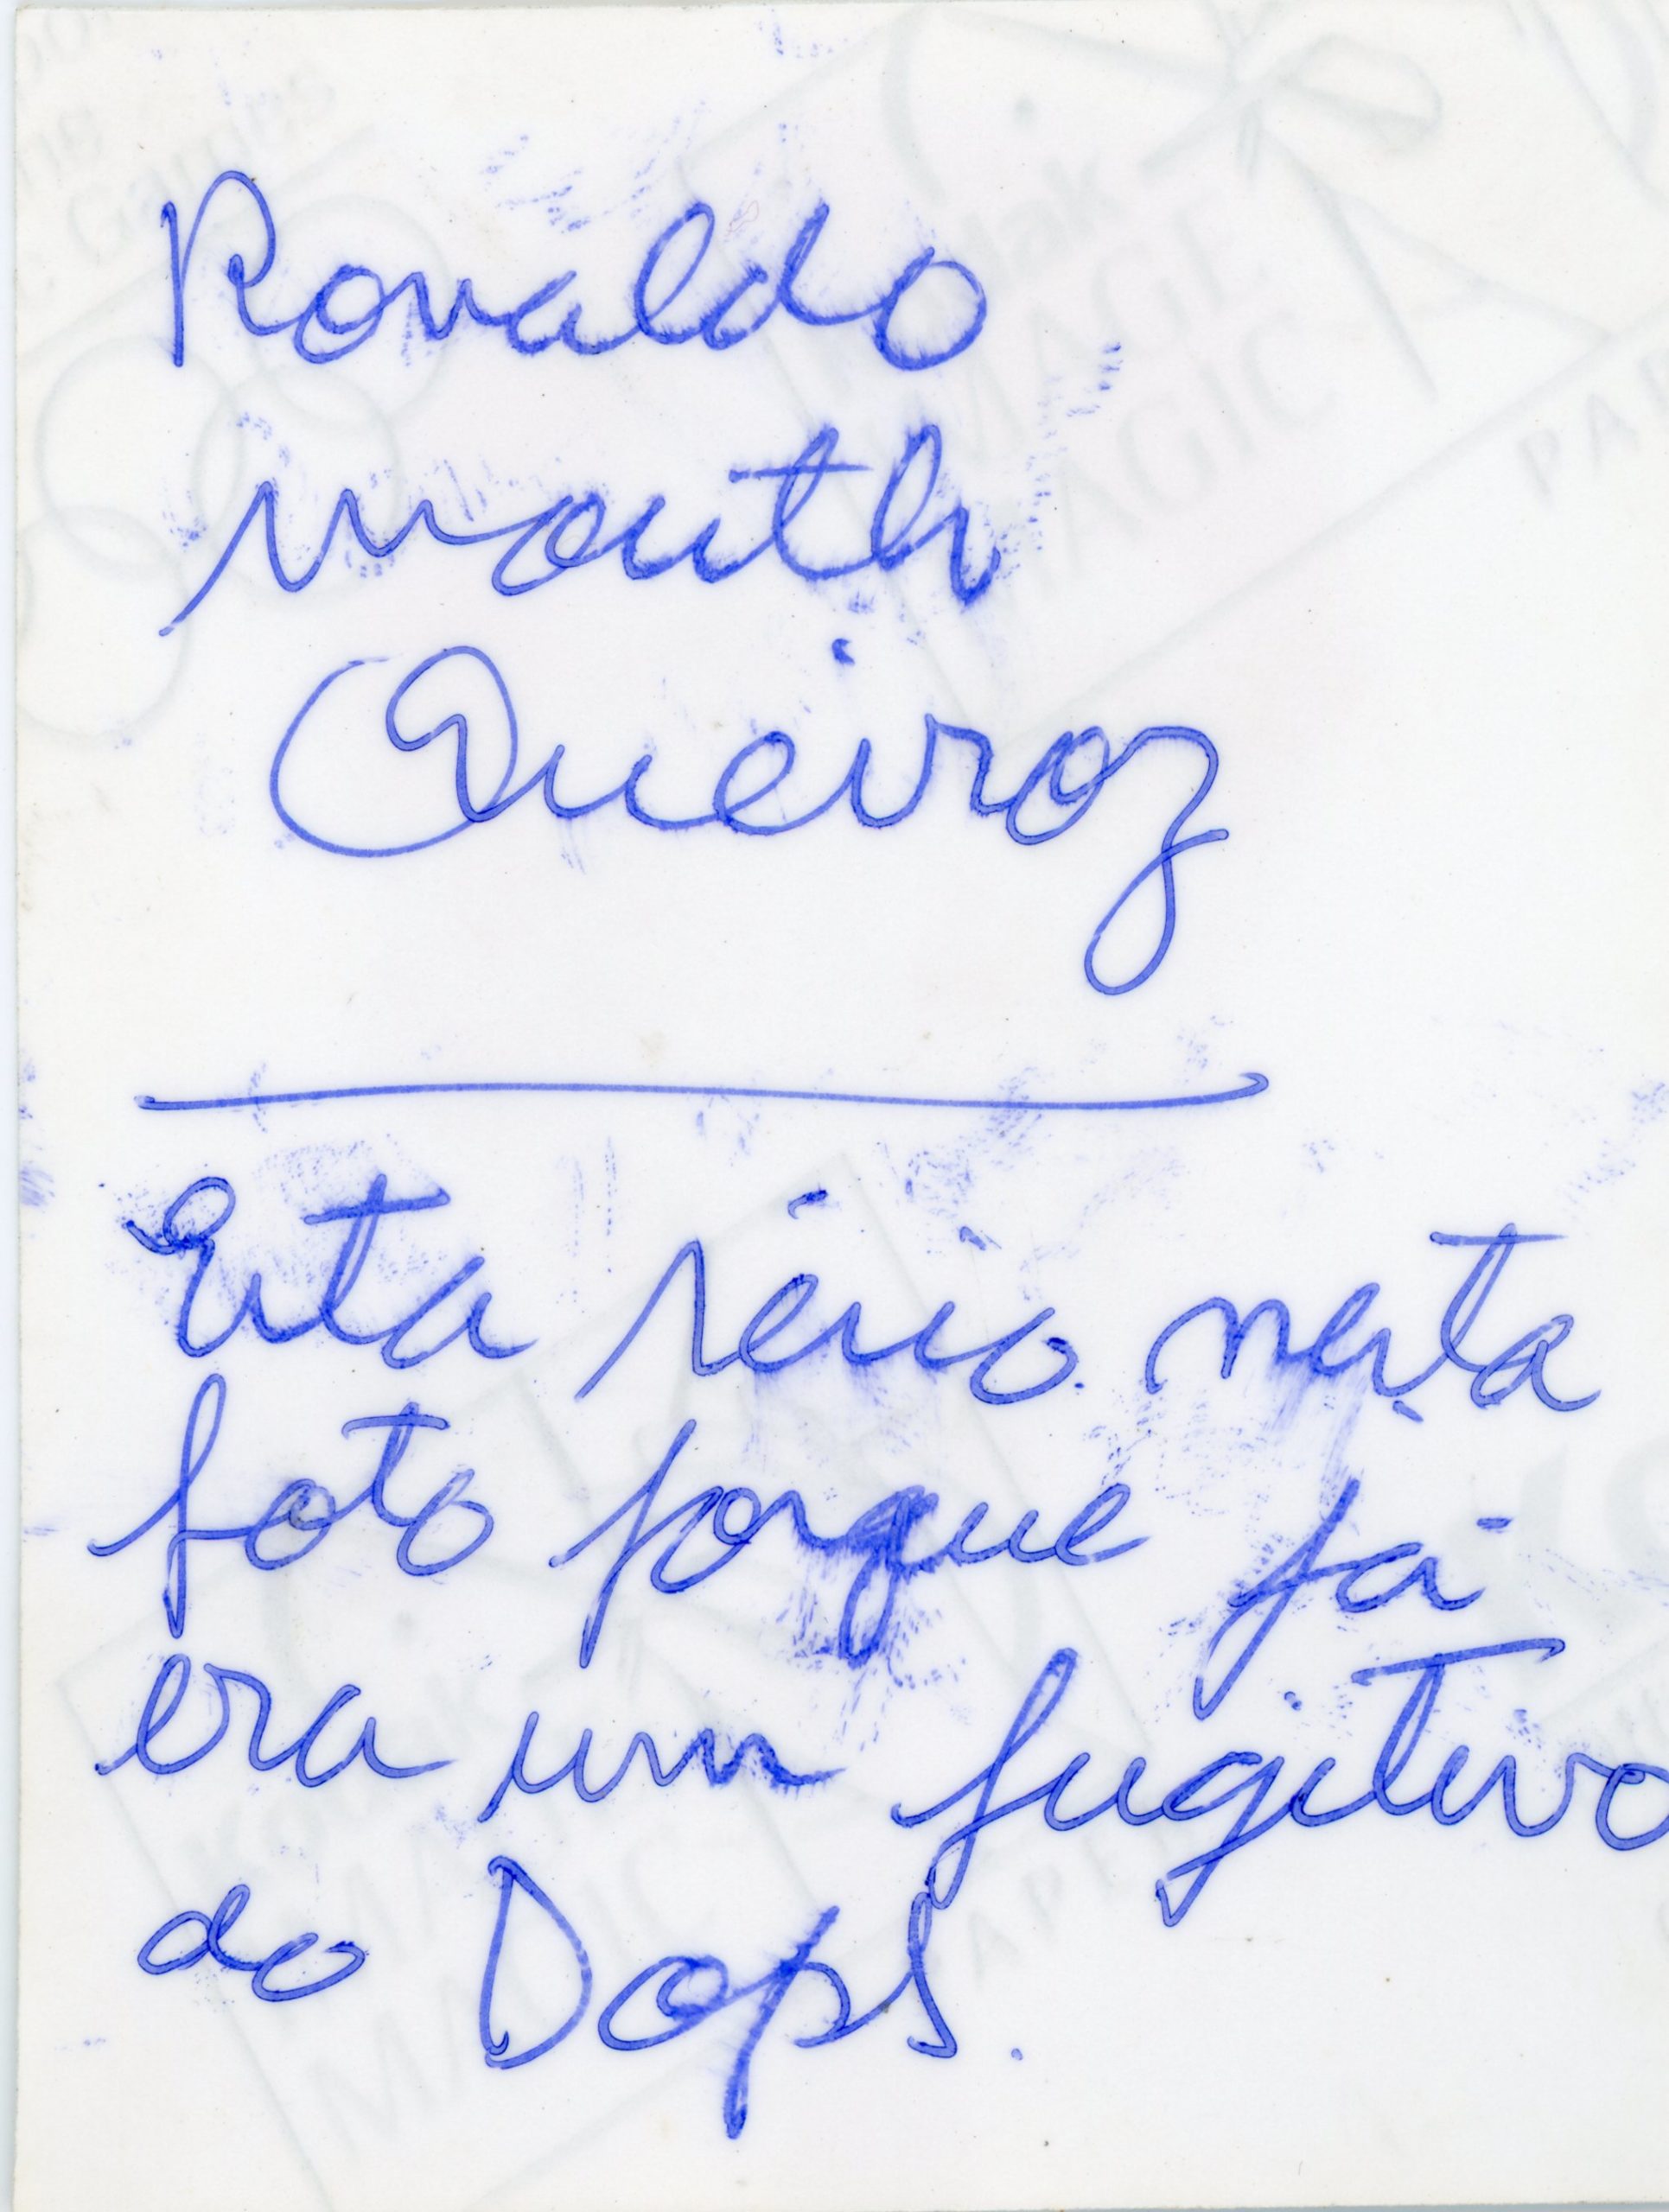 Ronaldo
mouth
Queiroz
Esta sério nesta
foto porque já
era um fugitivo
do Dops.